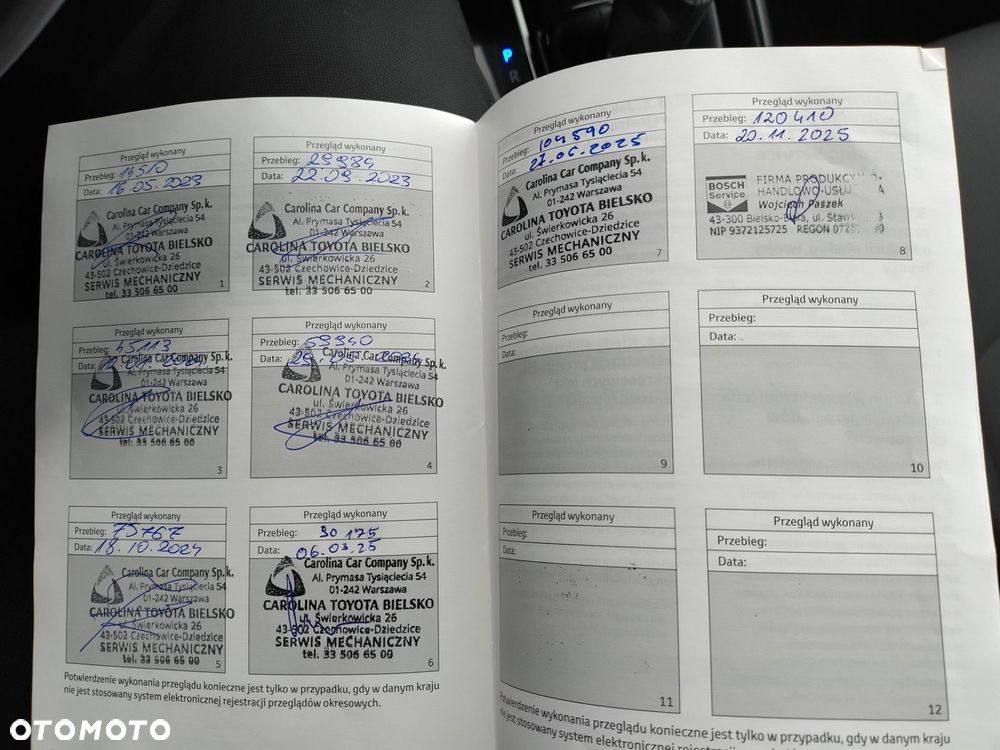 P
R
Przegląd wykonany
Przebieg: 14510
Data: 16.05.2023
Carolina Car Company Sp. k.
Al. Prymasa Tysiąclecia 54
01-242 Warszawa
CAROLINA TOYOTA BIELSKO
ul. Świerkowicka 26
43-502 Czechowice-Dziedzice
SERWIS MECHANICZNY
tel. 33 506 65 00
1
Przegląd wykonany
Przebieg: 29984
Data: 22.09.2023
Carolina Car Company Sp. k.
Al. Prymasa Tysiąclecia 54
01-242 Warszawa
CAROLINA TOYOTA BIELSKO
ul. Świerkowicka 26
43-502 Czechowice-Dziedzice
SERWIS MECHANICZNY
tel. 33 506 65 00
2
Przegląd wykonany
Przebieg: 45113
Data:
Carolina Car Company Sp. k.
Al. Prymasa Tysiąclecia 54
01-242 Warszawa
CAROLINA TOYOTA BIELSKO
ul. Świerkowicka 26
43-502 Czechowice-Dziedzice
SERWIS MECHANICZNY
tel. 33 506 65 00
3
Przegląd wykonany
Przebieg: 59340
Data:
Carolina Car Company Sp. k.
Al. Prymasa Tysiąclecia 54
01-242 Warszawa
CAROLINA TOYOTA BIELSKO
ul. Świerkowicka 26
43-502 Czechowice-Dziedzice
SERWIS MECHANICZNY
tel. 33 506 65 00
4
Przegląd wykonany
Przebieg: 75767
Data: 18.10.2024
Carolina Car Company Sp. k.
Al. Prymasa Tysiąclecia 54
01-242 Warszawa
CAROLINA TOYOTA BIELSKO
ul. Świerkowicka 26
43-502 Czechowice-Dziedzice
SERWIS MECHANICZNY
tel. 33 506 65 00
5
Przegląd wykonany
Przebieg: 90 175
Data: 06.03.25
Carolina Car Company Sp. k.
Al. Prymasa Tysiąclecia 54
01-242 Warszawa
CAROLINA TOYOTA BIELSKO
ul. Świerkowicka 26
43-502 Czechowice-Dziedzice
SERWIS MECHANICZNY
tel. 33 506 65 00
6
Potwierdzenie wykonania przeglądu konieczne jest tylko w przypadku, gdy w danym kraju
nie jest stosowany system elektronicznej rejestracji przeglądów okresowych.
Przegląd wykonany
Przebieg: 104590
Data: 27.06.2025
Carolina Car Company Sp. k.
Al. Prymasa Tysiąclecia 54
01-242 Warszawa
CAROLINA TOYOTA BIELSKO
ul. Świerkowicka 26
43-502 Czechowice-Dziedzice
SERWIS MECHANICZNY
tel. 33 506 65 00
7
Przegląd wykonany
Przebieg: 120410
Data: 20.11.2025
BOSCH
Service
FIRMA
HANDLOWO-
Wojciech Paszek
43-300 Bielsko-Biała, ul.
NIP 9372125725 REGON
8
Przegląd wykonany
Przebieg:
Data:
9
Przegląd wykonany
Przebieg:
Data:
10
Przegląd wykonany
Przebieg:
Data:
11
Przegląd wykonany
Przebieg:
Data:
12
Potwierdzenie wykonania przeglądu konieczne jest tylko w przypadku, gdy w danym kraju
nie jest stosowany system elektronicznej
OTOMOTO